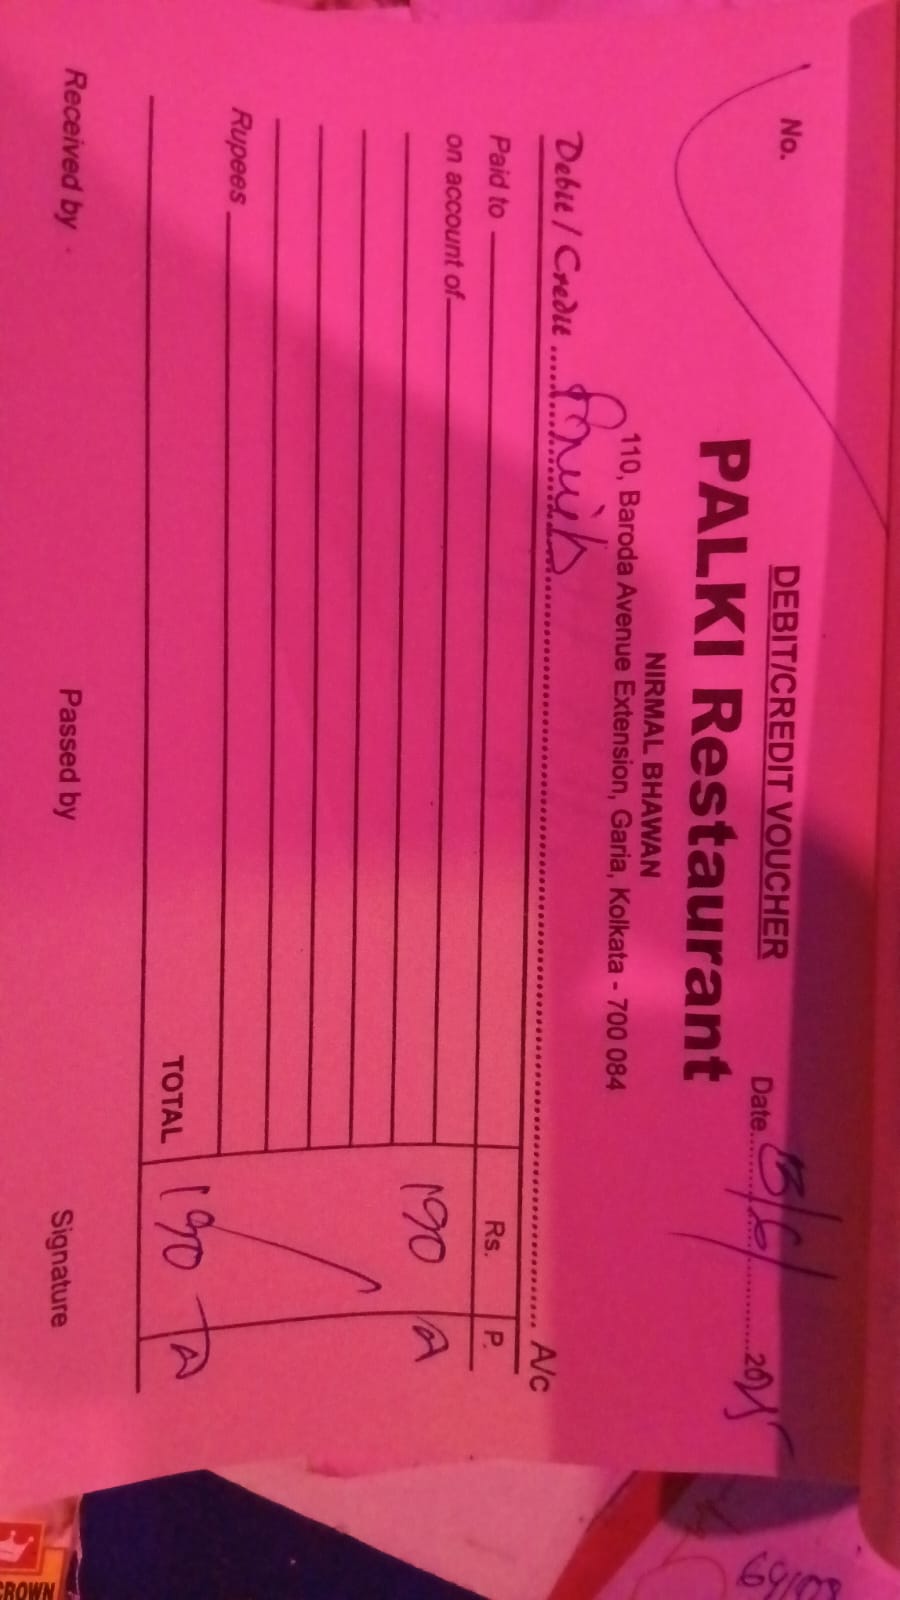 DEBIT/CREDIT VOUCHER
No.
Date 13/6/ 2025
PALKI Restaurant
NIRMAL BHAWAN
110, Baroda Avenue Extension, Garia, Kolkata - 700 084
Debit / Credit ........ A/c
Paid to
Rs. P.
on account of
190
Rupees
TOTAL 190
Received by Passed by Signature
CROWN